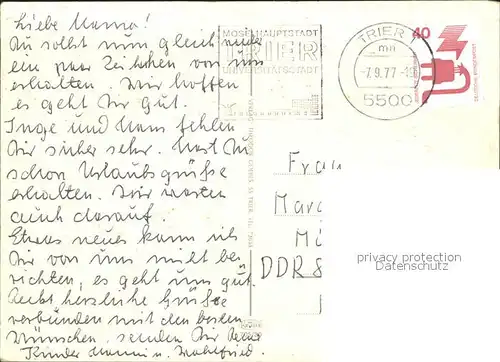 Liebe Mama!
Du sollst nun gleich wieder
ein paar Zeichen von uns
erhalten. Wir hoffen
es geht Dir gut.
Inge und Mam fehlen
Dir sicher sehr. Hast Du
schon Urlaubsgrüße
erhalten. Wir warten
auch darauf.
Etwas neues kann ich
Dir von uns nicht be-
richten, es geht uns gut.
Recht herzliche Grüße
verbunden mit den besten
Wünschen, senden Dir Deine
Kinder u. Wohlfried.
MOSELHAUPTSTADT
TRIER
UNIVERSITÄTSSTADT
TRIER 1
mn
-7.9.77-
5500
40
DEUTSCHE BUNDESPOST
Frau
Mar
DDR 8
privacy protection
Datenschutz